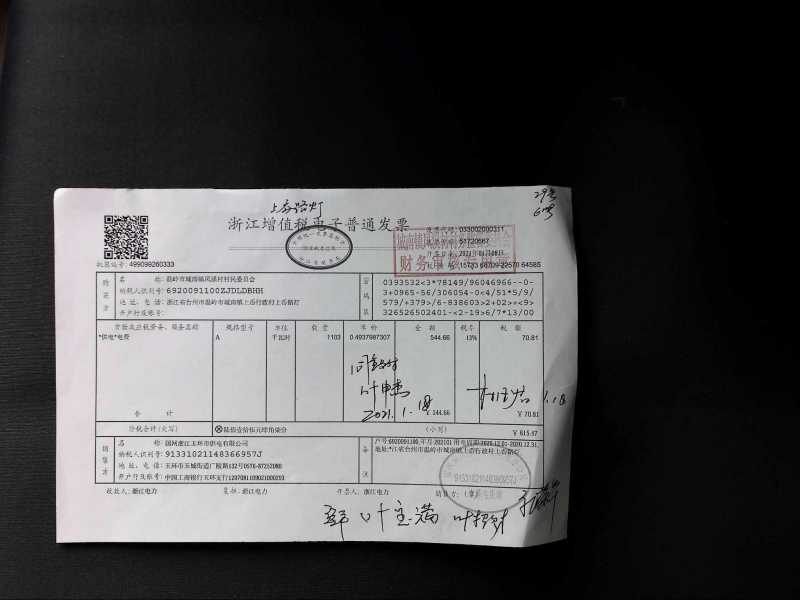 29号
6号
上岙路灯
浙江增值税电子普通发票
发票代码: 033002000311
发票号码: 57720667
机器编号: 499098260333
财务
购买方
名 称: 温岭市城南镇凤溪村村民委员会
纳税人识别号: 6920091100ZJDLDBHH
地址、电话: 浙江省台州市温岭市城南镇上岙行政村上岙路灯
开户行及账号:
密码区
0393532<3*78149/96046966--0-
3+0965-56/306054-0<4/51*5/9/
579/+379>/6-838603>2+02>+<9>
326526502401-<2-19>6/7*13/00
货物或应税劳务、服务名称 规格型号 单位 数量 单价 金额 税率 税额
*供电*电费 A 千瓦时 1103 0.4937987307 544.66 13% 70.81
2021.1.18
1.18
合 计 ¥544.66 ¥70.81
价税合计(大写) 陆佰壹拾伍元肆角柒分 (小写) ¥615.47
销售方
名 称: 国网浙江玉环市供电有限公司
纳税人识别号: 91331021148366957J
地址、电话: 玉环市玉城街道广陵路132号0576-87252080
开户行及账号: 中国工商银行玉环支行1207091109021000293
备注
户号:6920091100,年月:202101 用电周期:2020.12.01-2020.12.31,
地址:*江省台州市温岭市城南镇上岙行政村上岙路灯
91331021148366957J
收款人: 浙江电力 复核: 浙江电力 开票人: 浙江电力 销售方: (章)